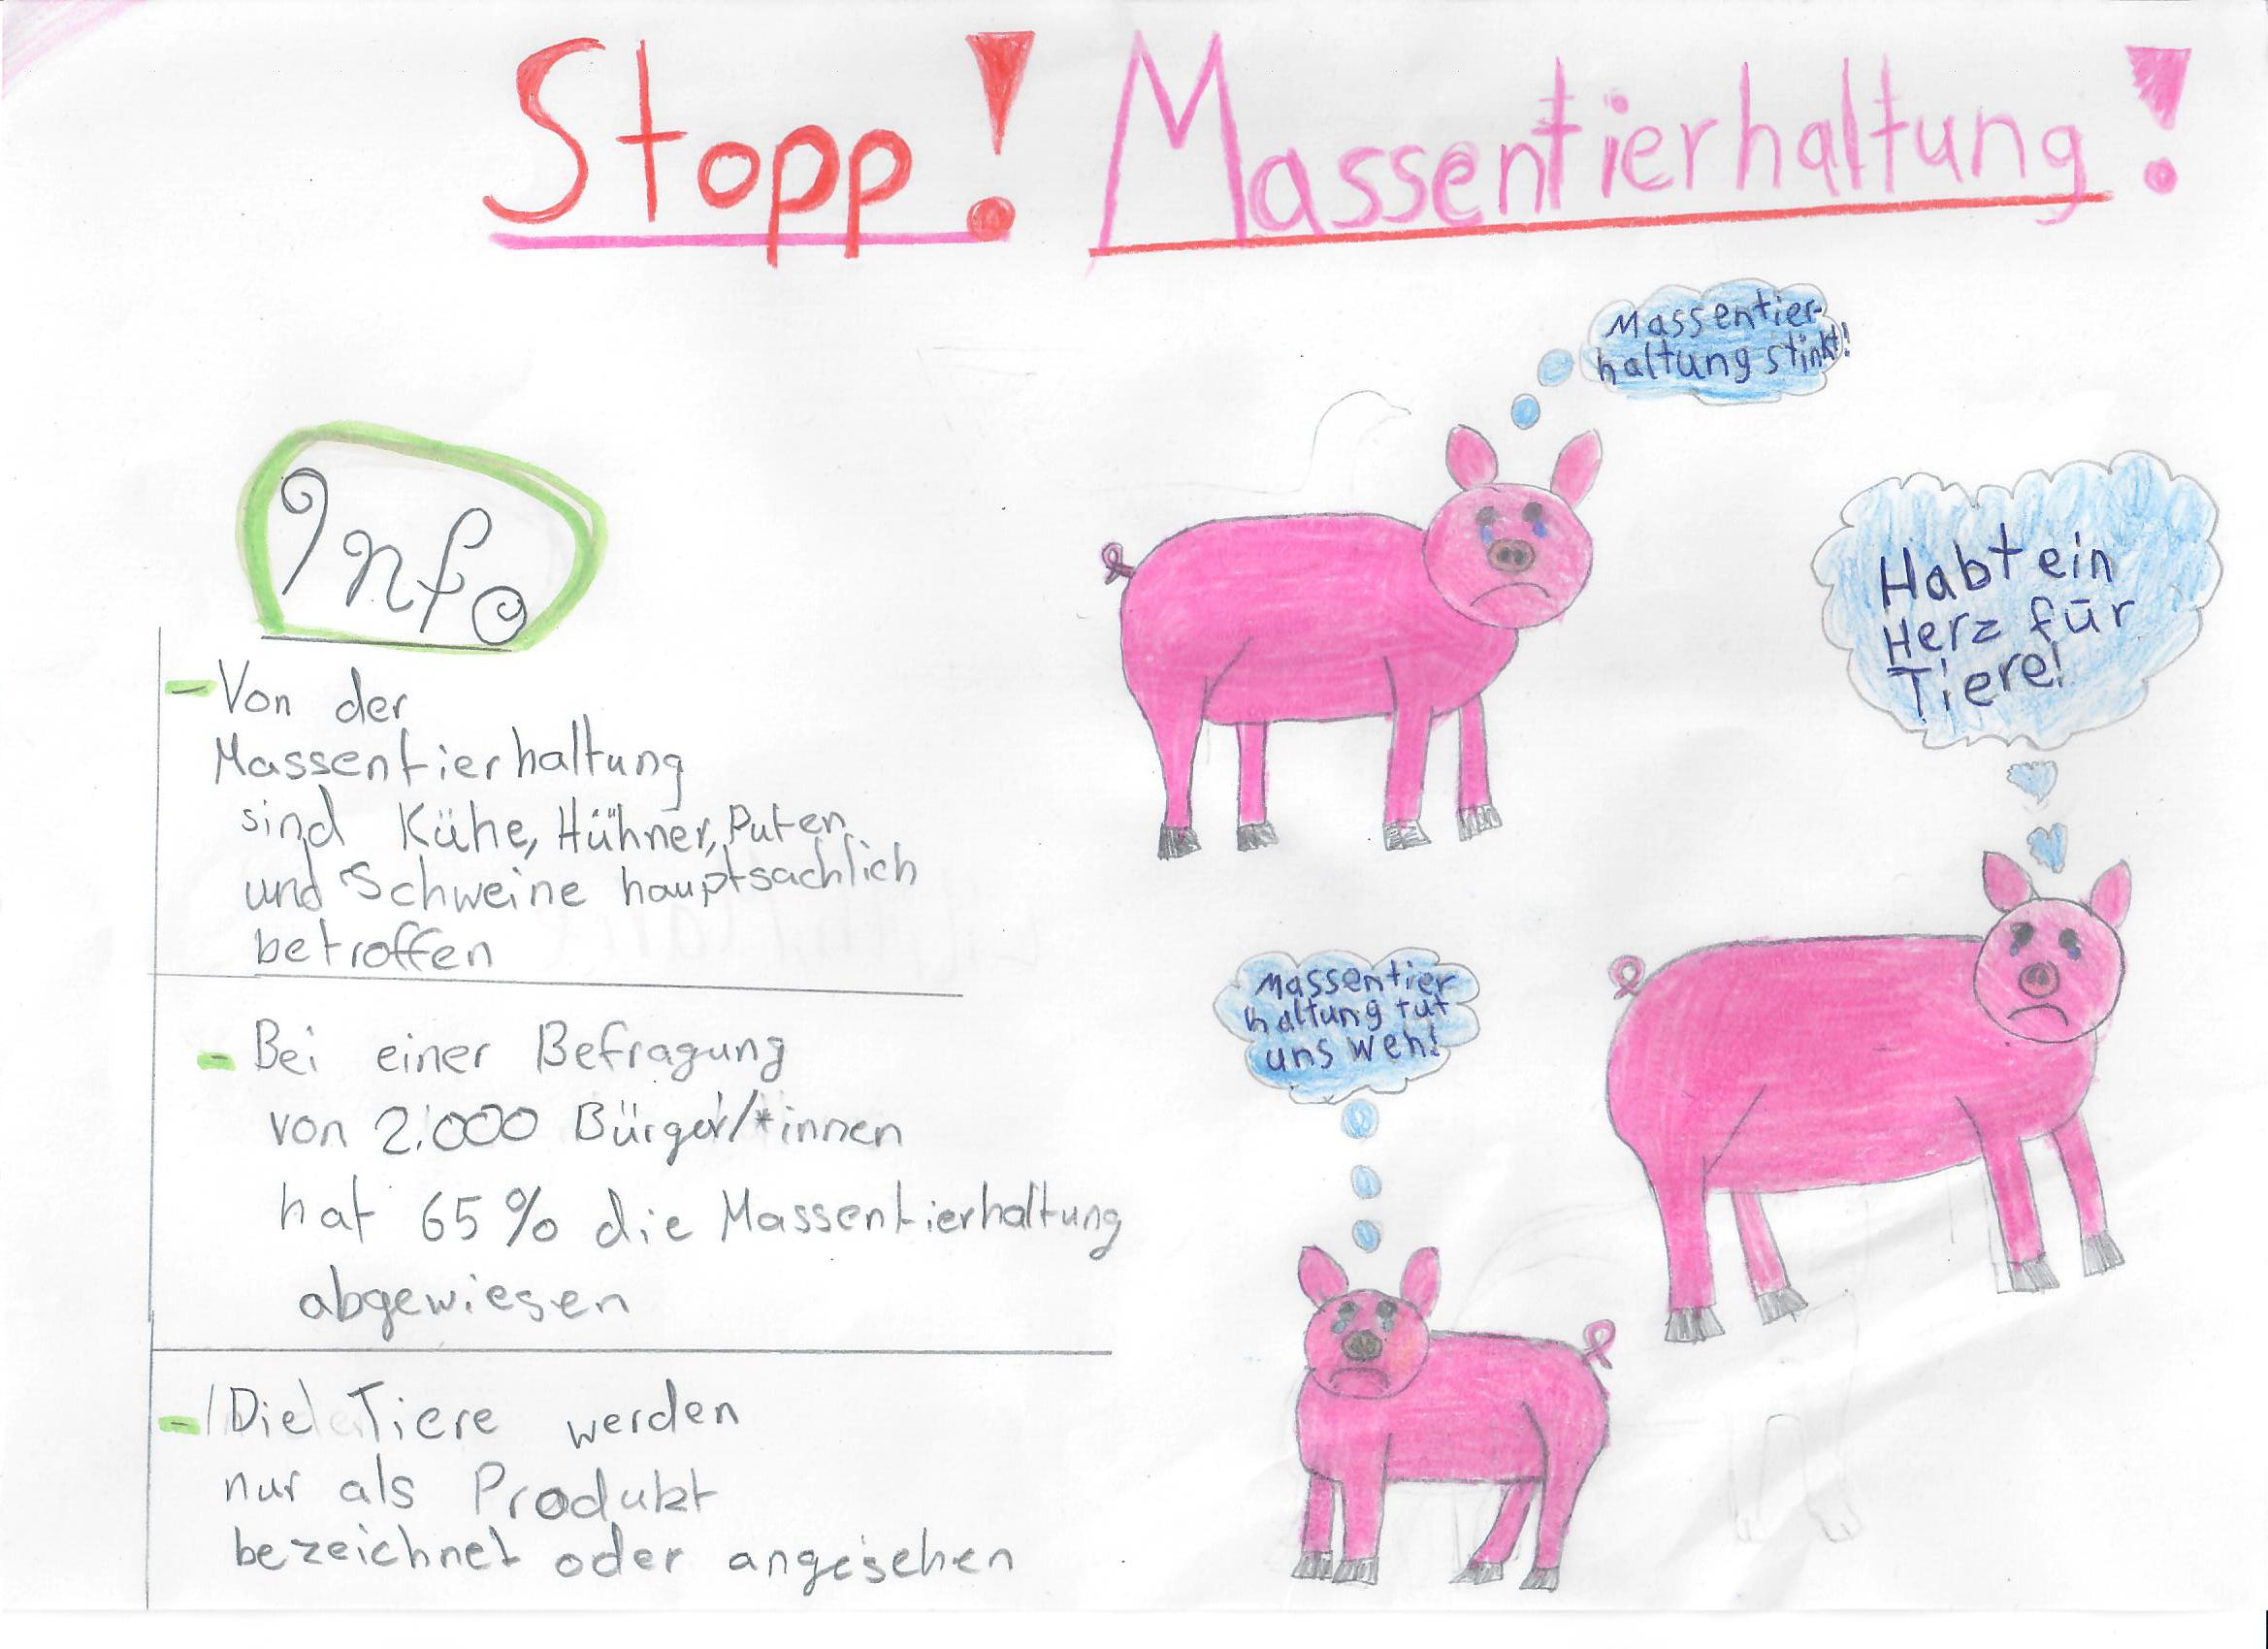 Stopp! Massentierhaltung!
Info
- Von der
Massentierhaltung
sind Kühe, Hühner, Puten
und Schweine hauptsächlich
betroffen
- Bei einer Befragung
von 2.000 Bürger/*innen
hat 65% die Massentierhaltung
abgewiesen
- Die Tiere werden
nur als Produkt
bezeichnet oder angesehen
Massentier-
haltung stinkt!
Habt ein
Herz für
Tiere!
Massentier
haltung tut
uns weh!